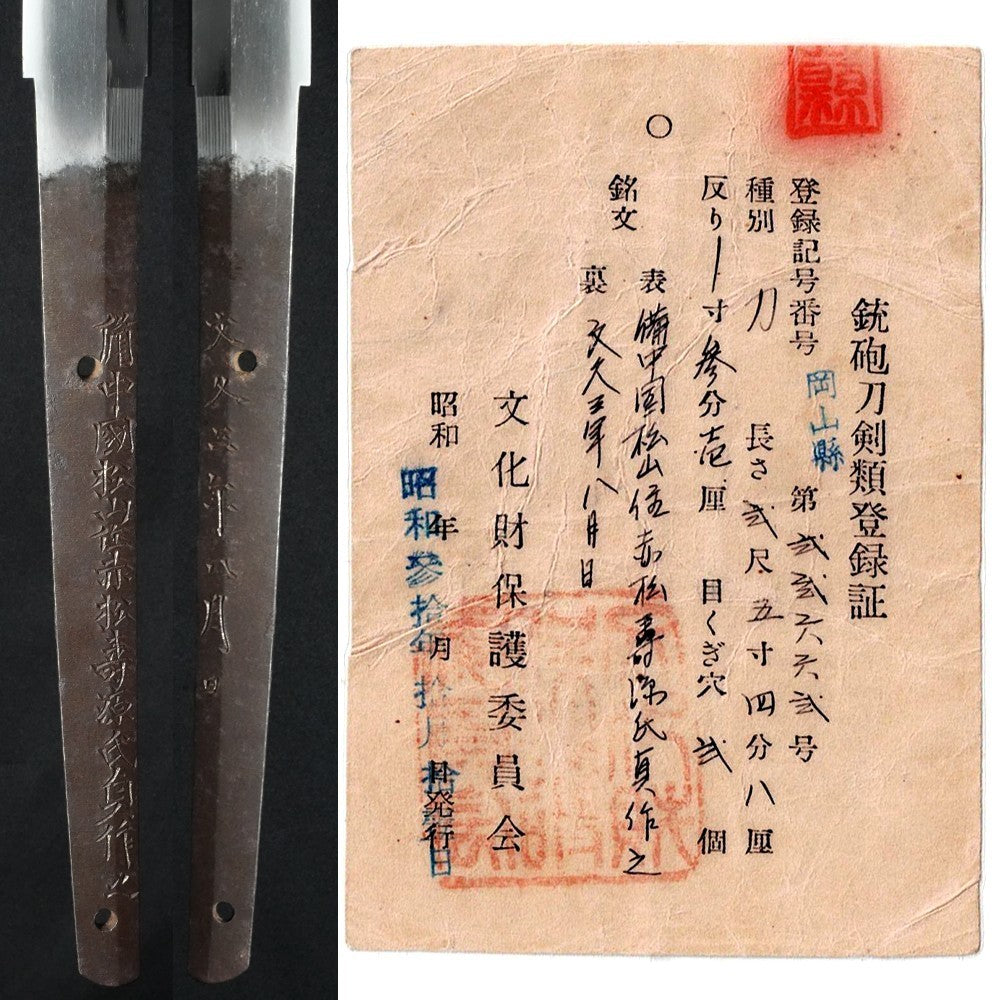 備中國松山住赤松壽源氏貞作之
文久年八月日
縣
銃砲刀剣類登録証
登録記号番号 岡山縣 第弐弐六六弐号
種別 刀 長さ弐尺五寸四分八厘
反りー寸参分壱厘 目くぎ穴 弐個
銘文 表 備中国松山住赤松壽源氏貞作之
裏 文久三年八月日
文化財保護委員会
昭和 年 月 日発行
昭和参拾年拾月拾日